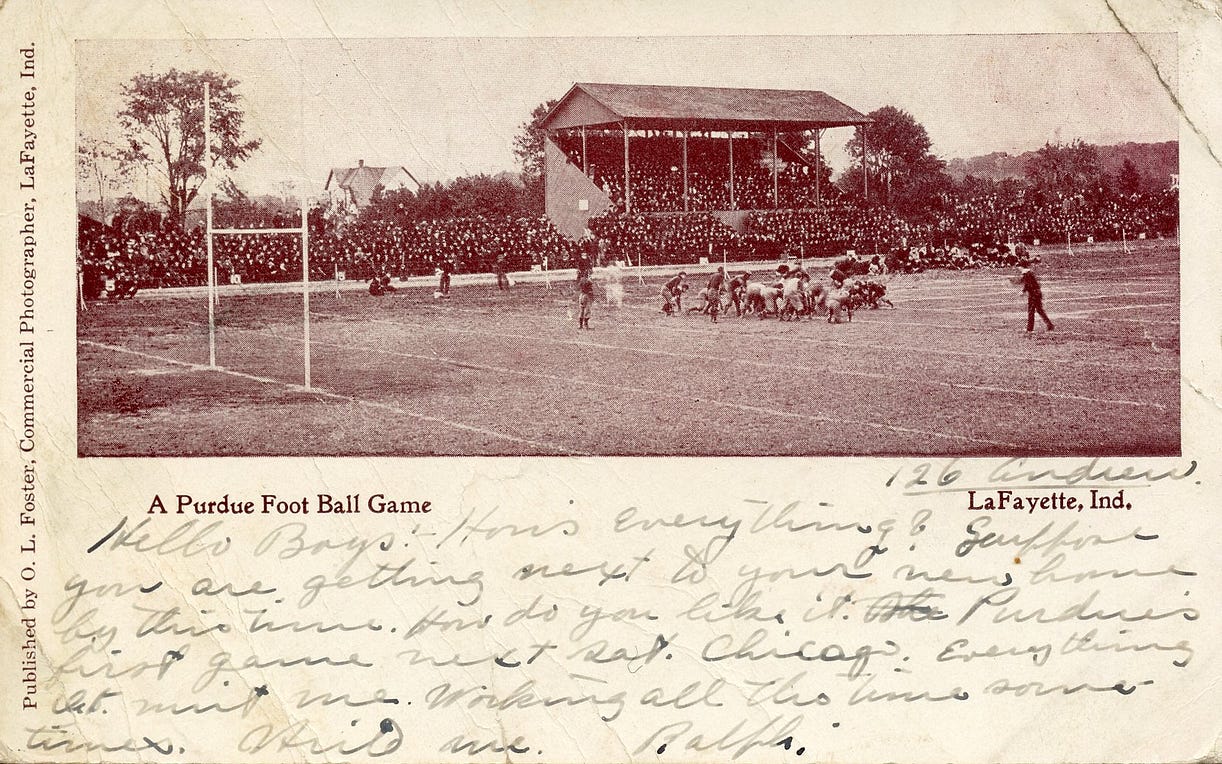 Published by O. L. Foster, Commercial Photographer, LaFayette, Ind.
126 Andrew.
A Purdue Foot Ball Game
LaFayette, Ind.
Hello Boys! - How's everything? Suppose
you are getting next to your new home
by this time. How do you like it. Purdue's
first game next sat. Chicago. Everything
me. Working all the time some
times. Write me. Ralph.